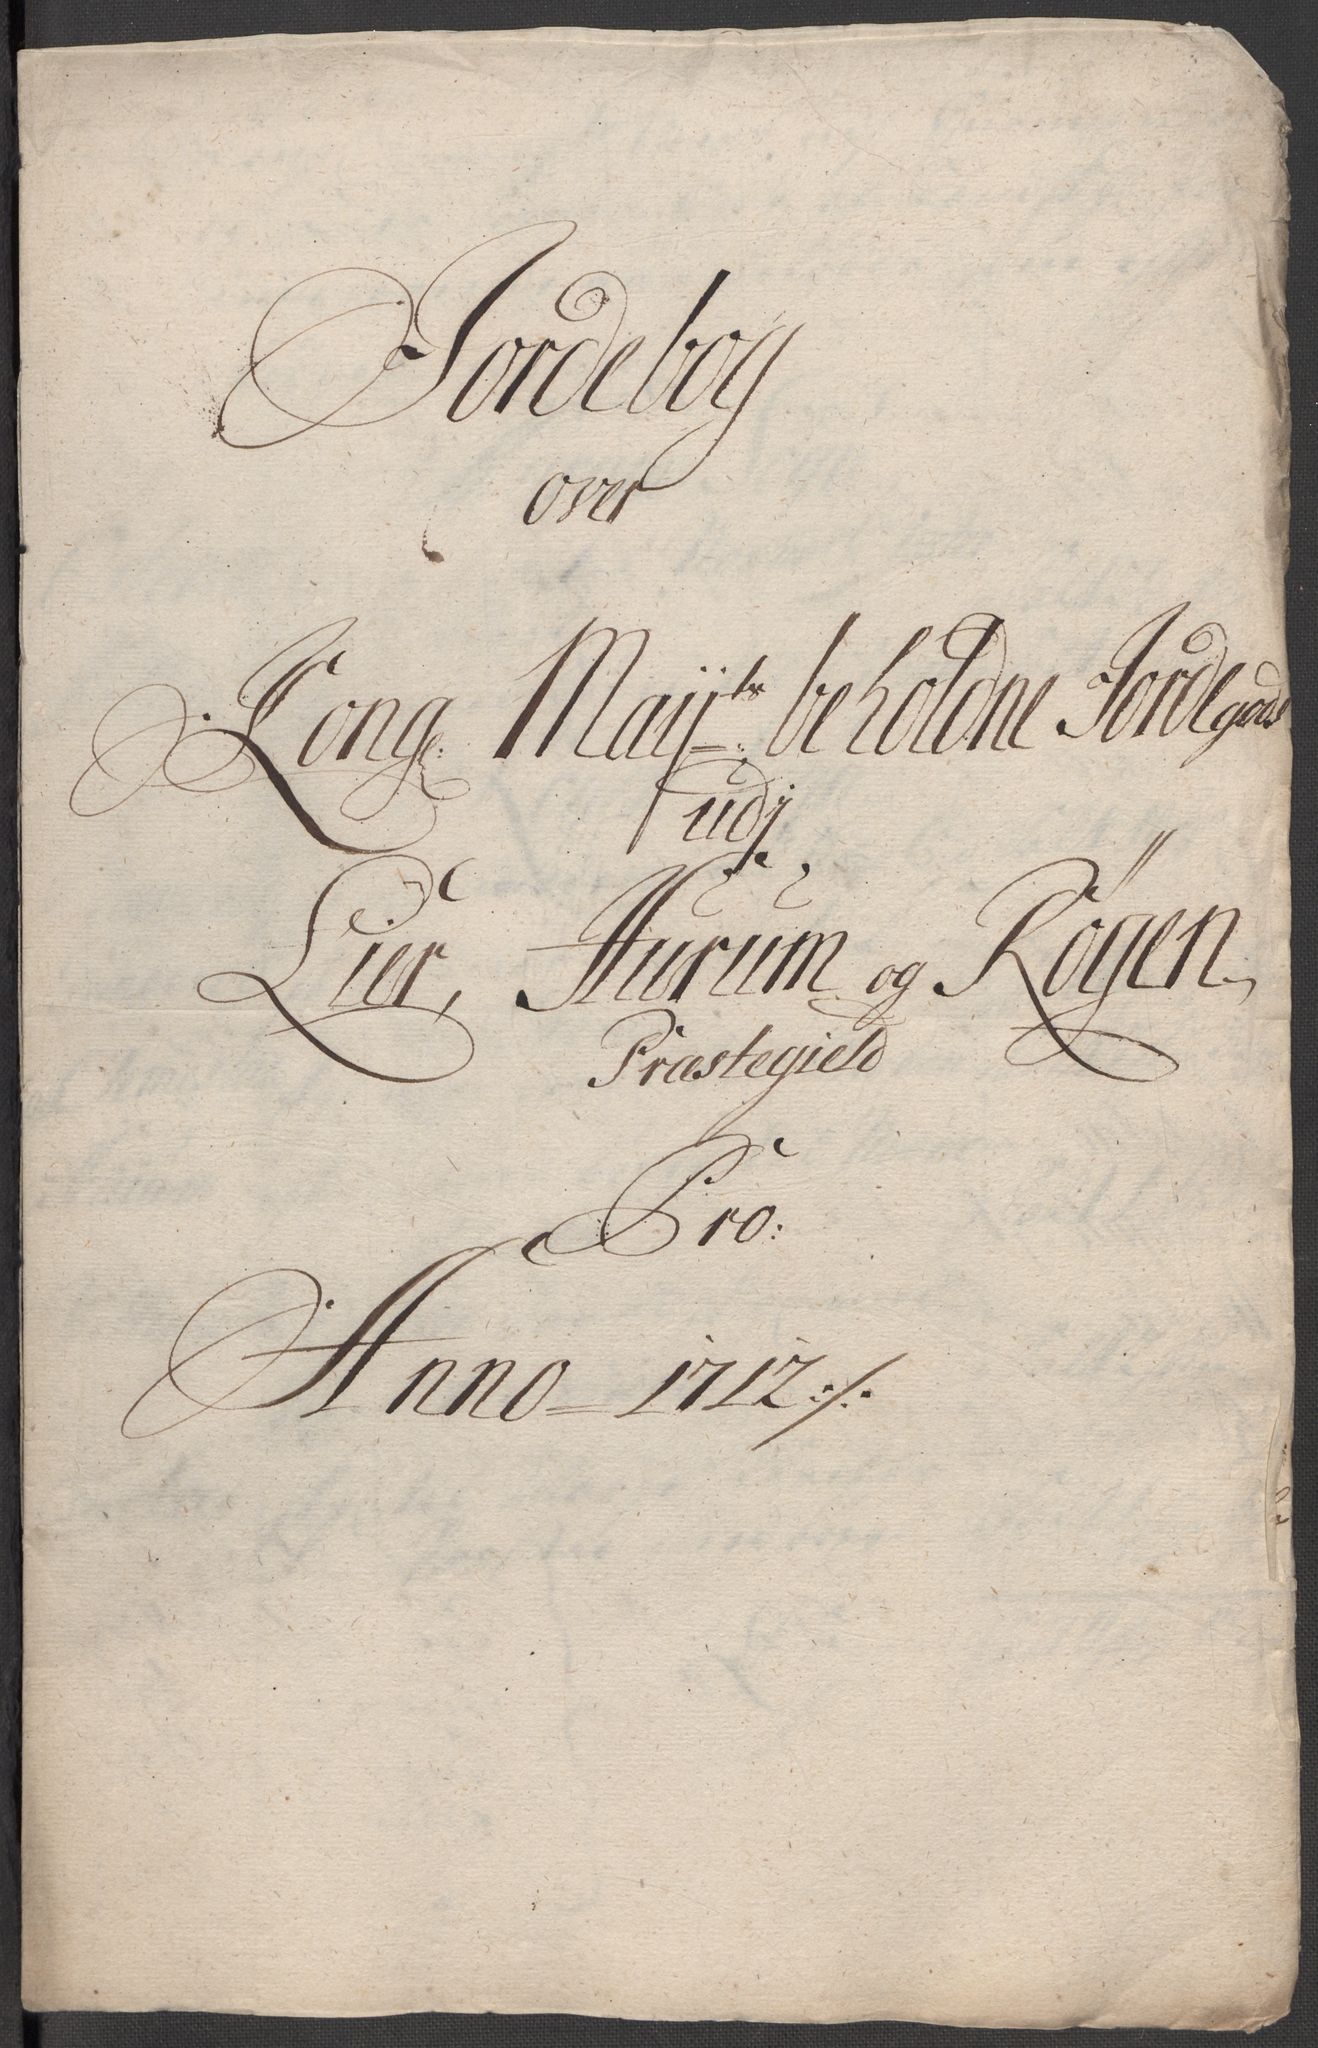 Jordebog
over
Kong: Maÿtz beholdne Jordegods
udj
Lier, Hurum og Röyen
Præstegield
Pro:
Anno = 1712 ·/·